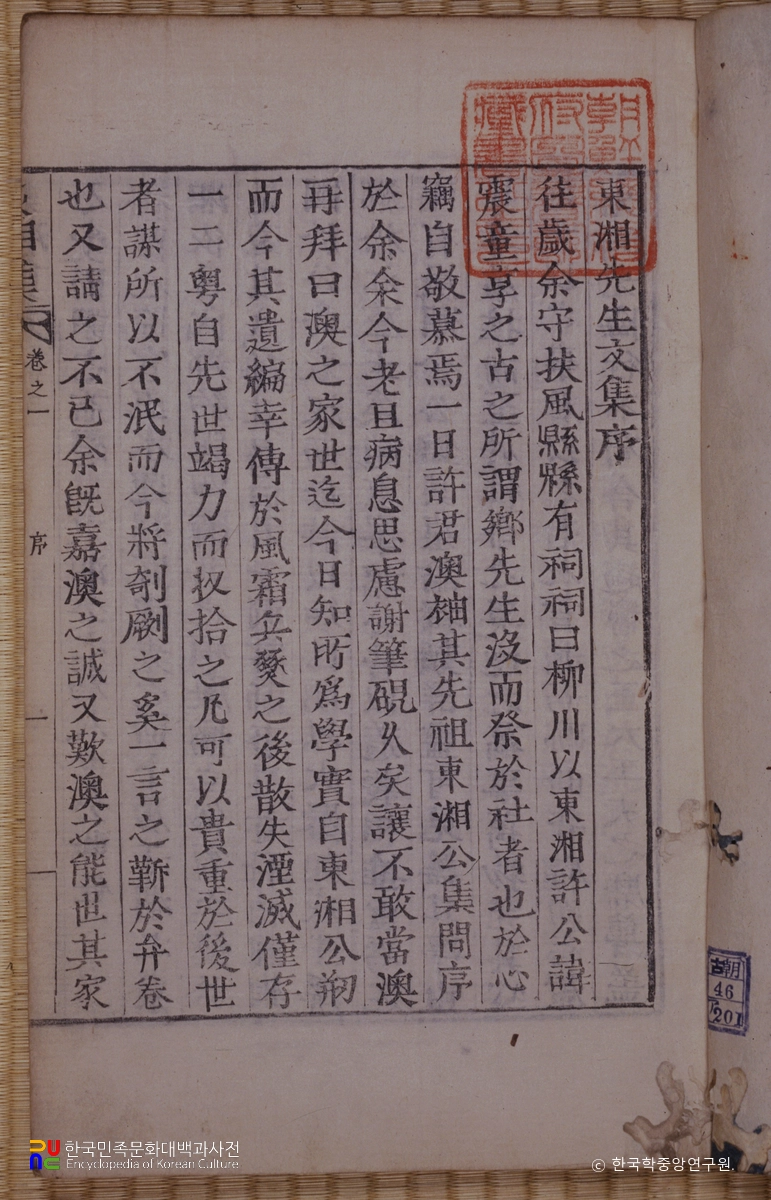 東湘先生文集序
往歲余守扶風縣縣有祠祠曰柳川以東湘許公諱
震童享之古之所謂鄕先生沒而祭於社者也於心
竊自敬慕焉一日許君澳袖其先祖東湘公集問序
於余余今老且病息思慮謝筆硯久矣讓不敢當澳
再拜曰澳之家世迄今日知所爲學實自東湘公剏
而今其遺編幸傳於風霜兵燹之後散失湮滅僅存
一二粤自先世竭力而收拾之凡可以貴重於後世
者謀所以不泯而今將剞劂之奚一言之靳於弁卷
也又請之不已余旣嘉澳之誠又歎澳之能世其家
卷之一
序
一
古朝
46
201
한국민족문화대백과사전
Encyclopedia of Korean Culture
© 한국학중앙연구원